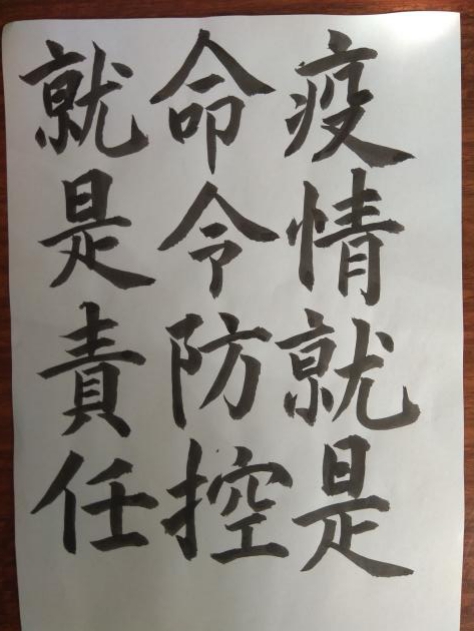 疫情就是
命令防控
就是責任